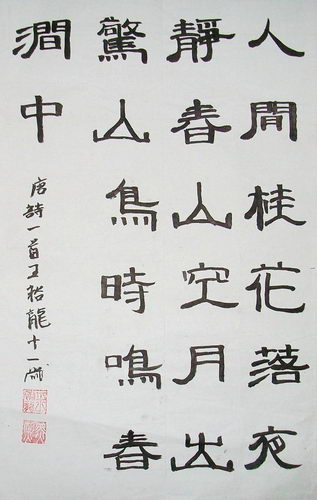 人間桂花落夜
靜春山空月出
驚山鳥時鳴春
澗中
唐詩一首王 龍十一歲